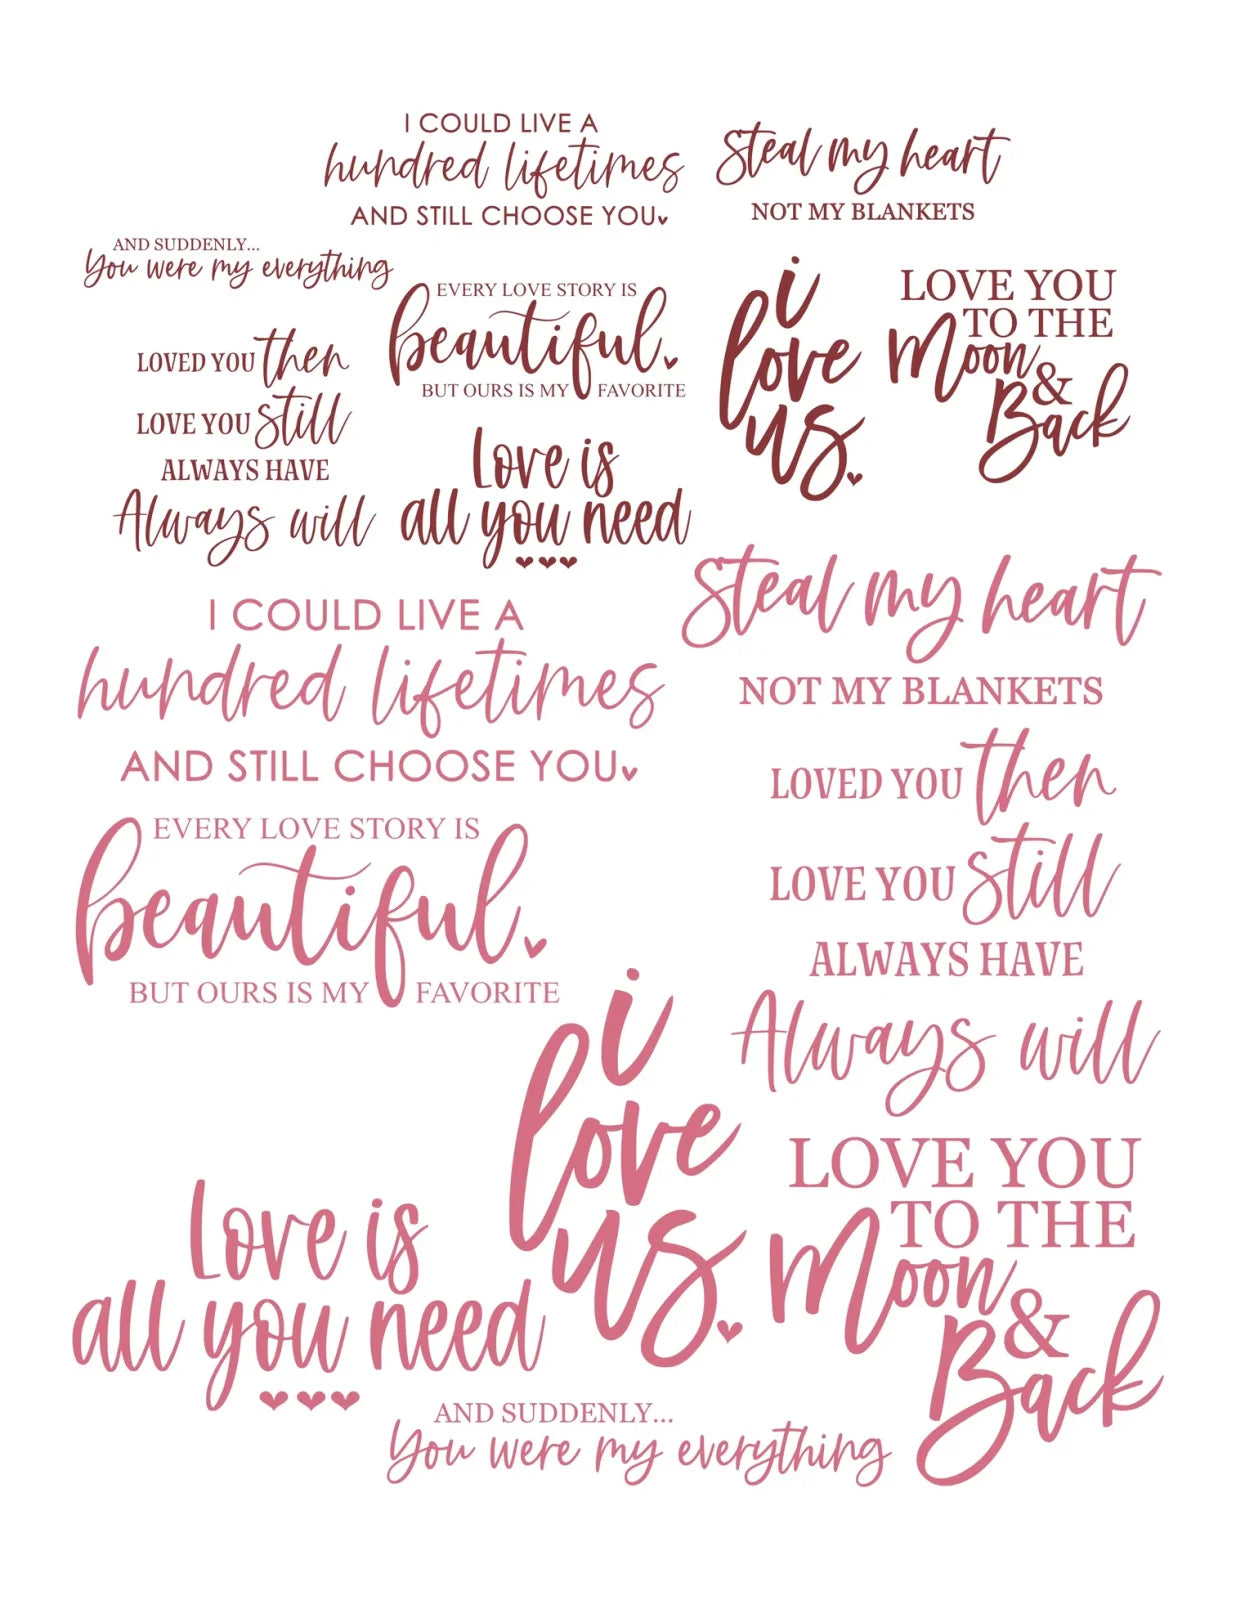 I COULD LIVE A
hundred lifetimes
AND STILL CHOOSE YOU
Steal my heart
NOT MY BLANKETS
AND SUDDENLY...
You were my everything
EVERY LOVE STORY IS
beautiful.
BUT OURS IS MY FAVORITE
i
love
us.
LOVE YOU
TO THE
Moon
&
Back
LOVED YOU then
LOVE YOU still
ALWAYS HAVE
Always will
Love is
all you need
I COULD LIVE A
hundred lifetimes
AND STILL CHOOSE YOU
Steal my heart
NOT MY BLANKETS
LOVED YOU then
LOVE YOU still
ALWAYS HAVE
Always will
EVERY LOVE STORY IS
beautiful.
BUT OURS IS MY FAVORITE
i
love
us.
LOVE YOU
TO THE
Moon
&
Back
Love is
all you need
AND SUDDENLY...
You were my everything